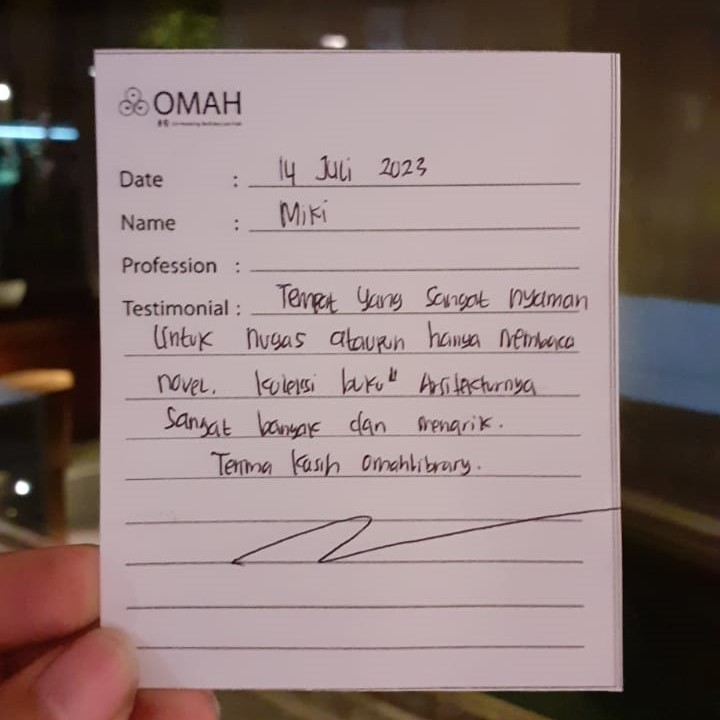 OMAH
Date : 14 Juli 2023
Name : Miki
Profession :
Testimonial : Tempat yang sangat nyaman
Untuk nugas ataupun hanya membaca
novel. koleksi buku" Arsitekturnya
Sangat banyak dan menarik.
Terima kasih omahlibrary.